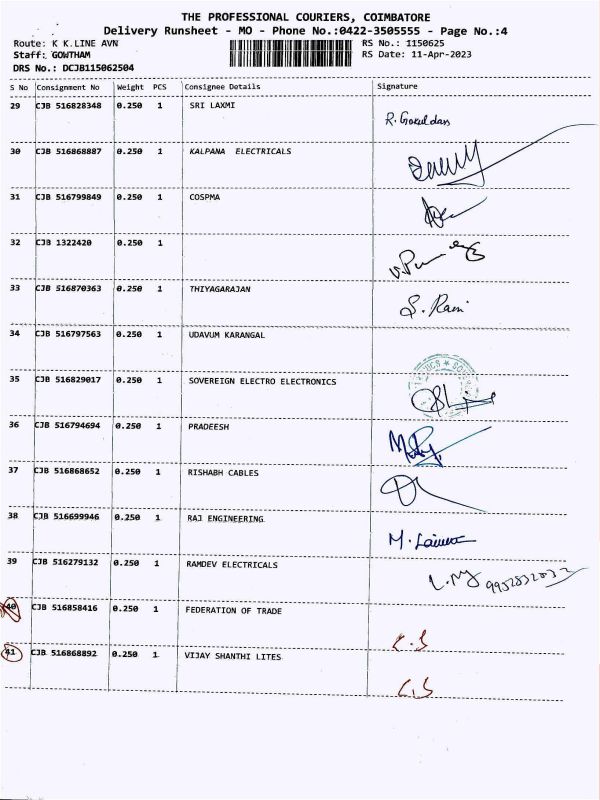 THE PROFESSIONAL COURIERS, COIMBATORE
Delivery Runsheet - MO - Phone No.:0422-3505555 - Page No.:4
Route: K K.LINE AVN RS No.: 1150625
Staff: GOWTHAM RS Date: 11-Apr-2023
DRS No.: DCJB115062504
S No Consignment No Weight PCS Consignee Details Signature
29 CJB 516828348 0.250 1 SRI LAXMI
R. Gokuldas
30 CJB 516868887 0.250 1 KALPANA ELECTRICALS
31 CJB 516799849 0.250 1 COSPMA
32 CJB 1322420 0.250 1
33 CJB 516870363 0.250 1 THIYAGARAJAN
S. Rani
34 CJB 516797563 0.250 1 UDAVUM KARANGAL
35 CJB 516829017 0.250 1 SOVEREIGN ELECTRO ELECTRONICS
36 CJB 516794694 0.250 1 PRADEESH
37 CJB 516868652 0.250 1 RISHABH CABLES
38 CJB 516699946 0.250 1 RAJ ENGINEERING
39 CJB 516279132 0.250 1 RAMDEV ELECTRICALS
40 CJB 516858416 0.250 1 FEDERATION OF TRADE
C.S
41 CJB 516868892 0.250 1 VIJAY SHANTHI LITES
C.S